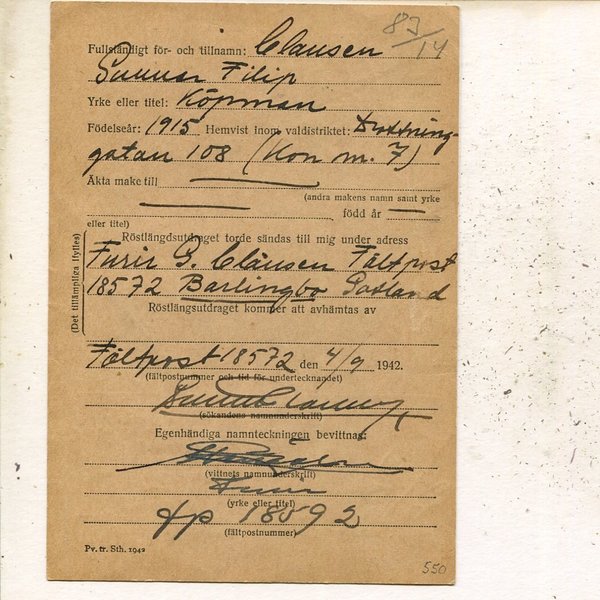 83/14
Fullständigt för- och tillnamn: Clausen
Gunnar Filip
Yrke eller titel: Köpman
Födelseår: 1915 Hemvist inom valdistriktet: Drottning-
gatan 108 (Kon m. 7)
Äkta make till
(andra makens namn samt yrke
född år
eller titel)
(Det tillämpliga ifylles)
Röstlängdsutdraget torde sändas till mig under adress
Furir G. Clausen Fältpost
18572 Barlingbo Gotland
Röstlängsutdraget kommer att avhämtas av
Fältpost 18572 den 4/9 1942.
(fältpostnummer och tid för undertecknandet)
(sökandens namnunderskrift)
Egenhändiga namnteckningen bevittnas:
(vittnets namnunderskrift)
Furir
(yrke eller titel)
fp 18592
(fältpostnummer)
Pv. tr. Sth. 1942
550